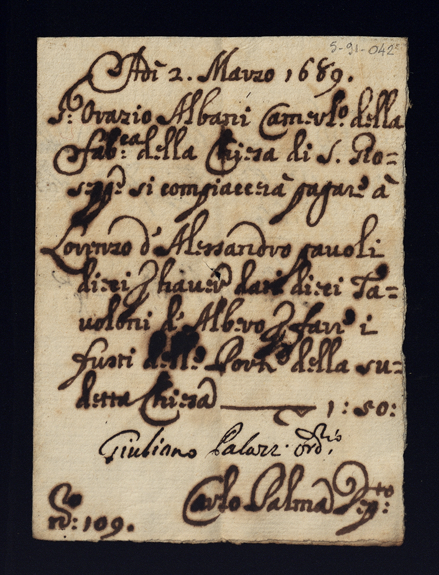 5-91-042
Adì 2. Marzo 1689.
S.r Orazio Albani Camerl.o della
fab.ca della Chiesa di S. Gio=
seppe si compiacerà pagare à
Lorenzo d'Alessandro pavoli
dieci p haver dati dieci Ta=
voloni d'Albero p fare i
fusti delle Porte della su=
detta Chiesa 1:50:
Giuliano Palazz. ord.
Carlo Palma Seg.to:
N.o: 109.